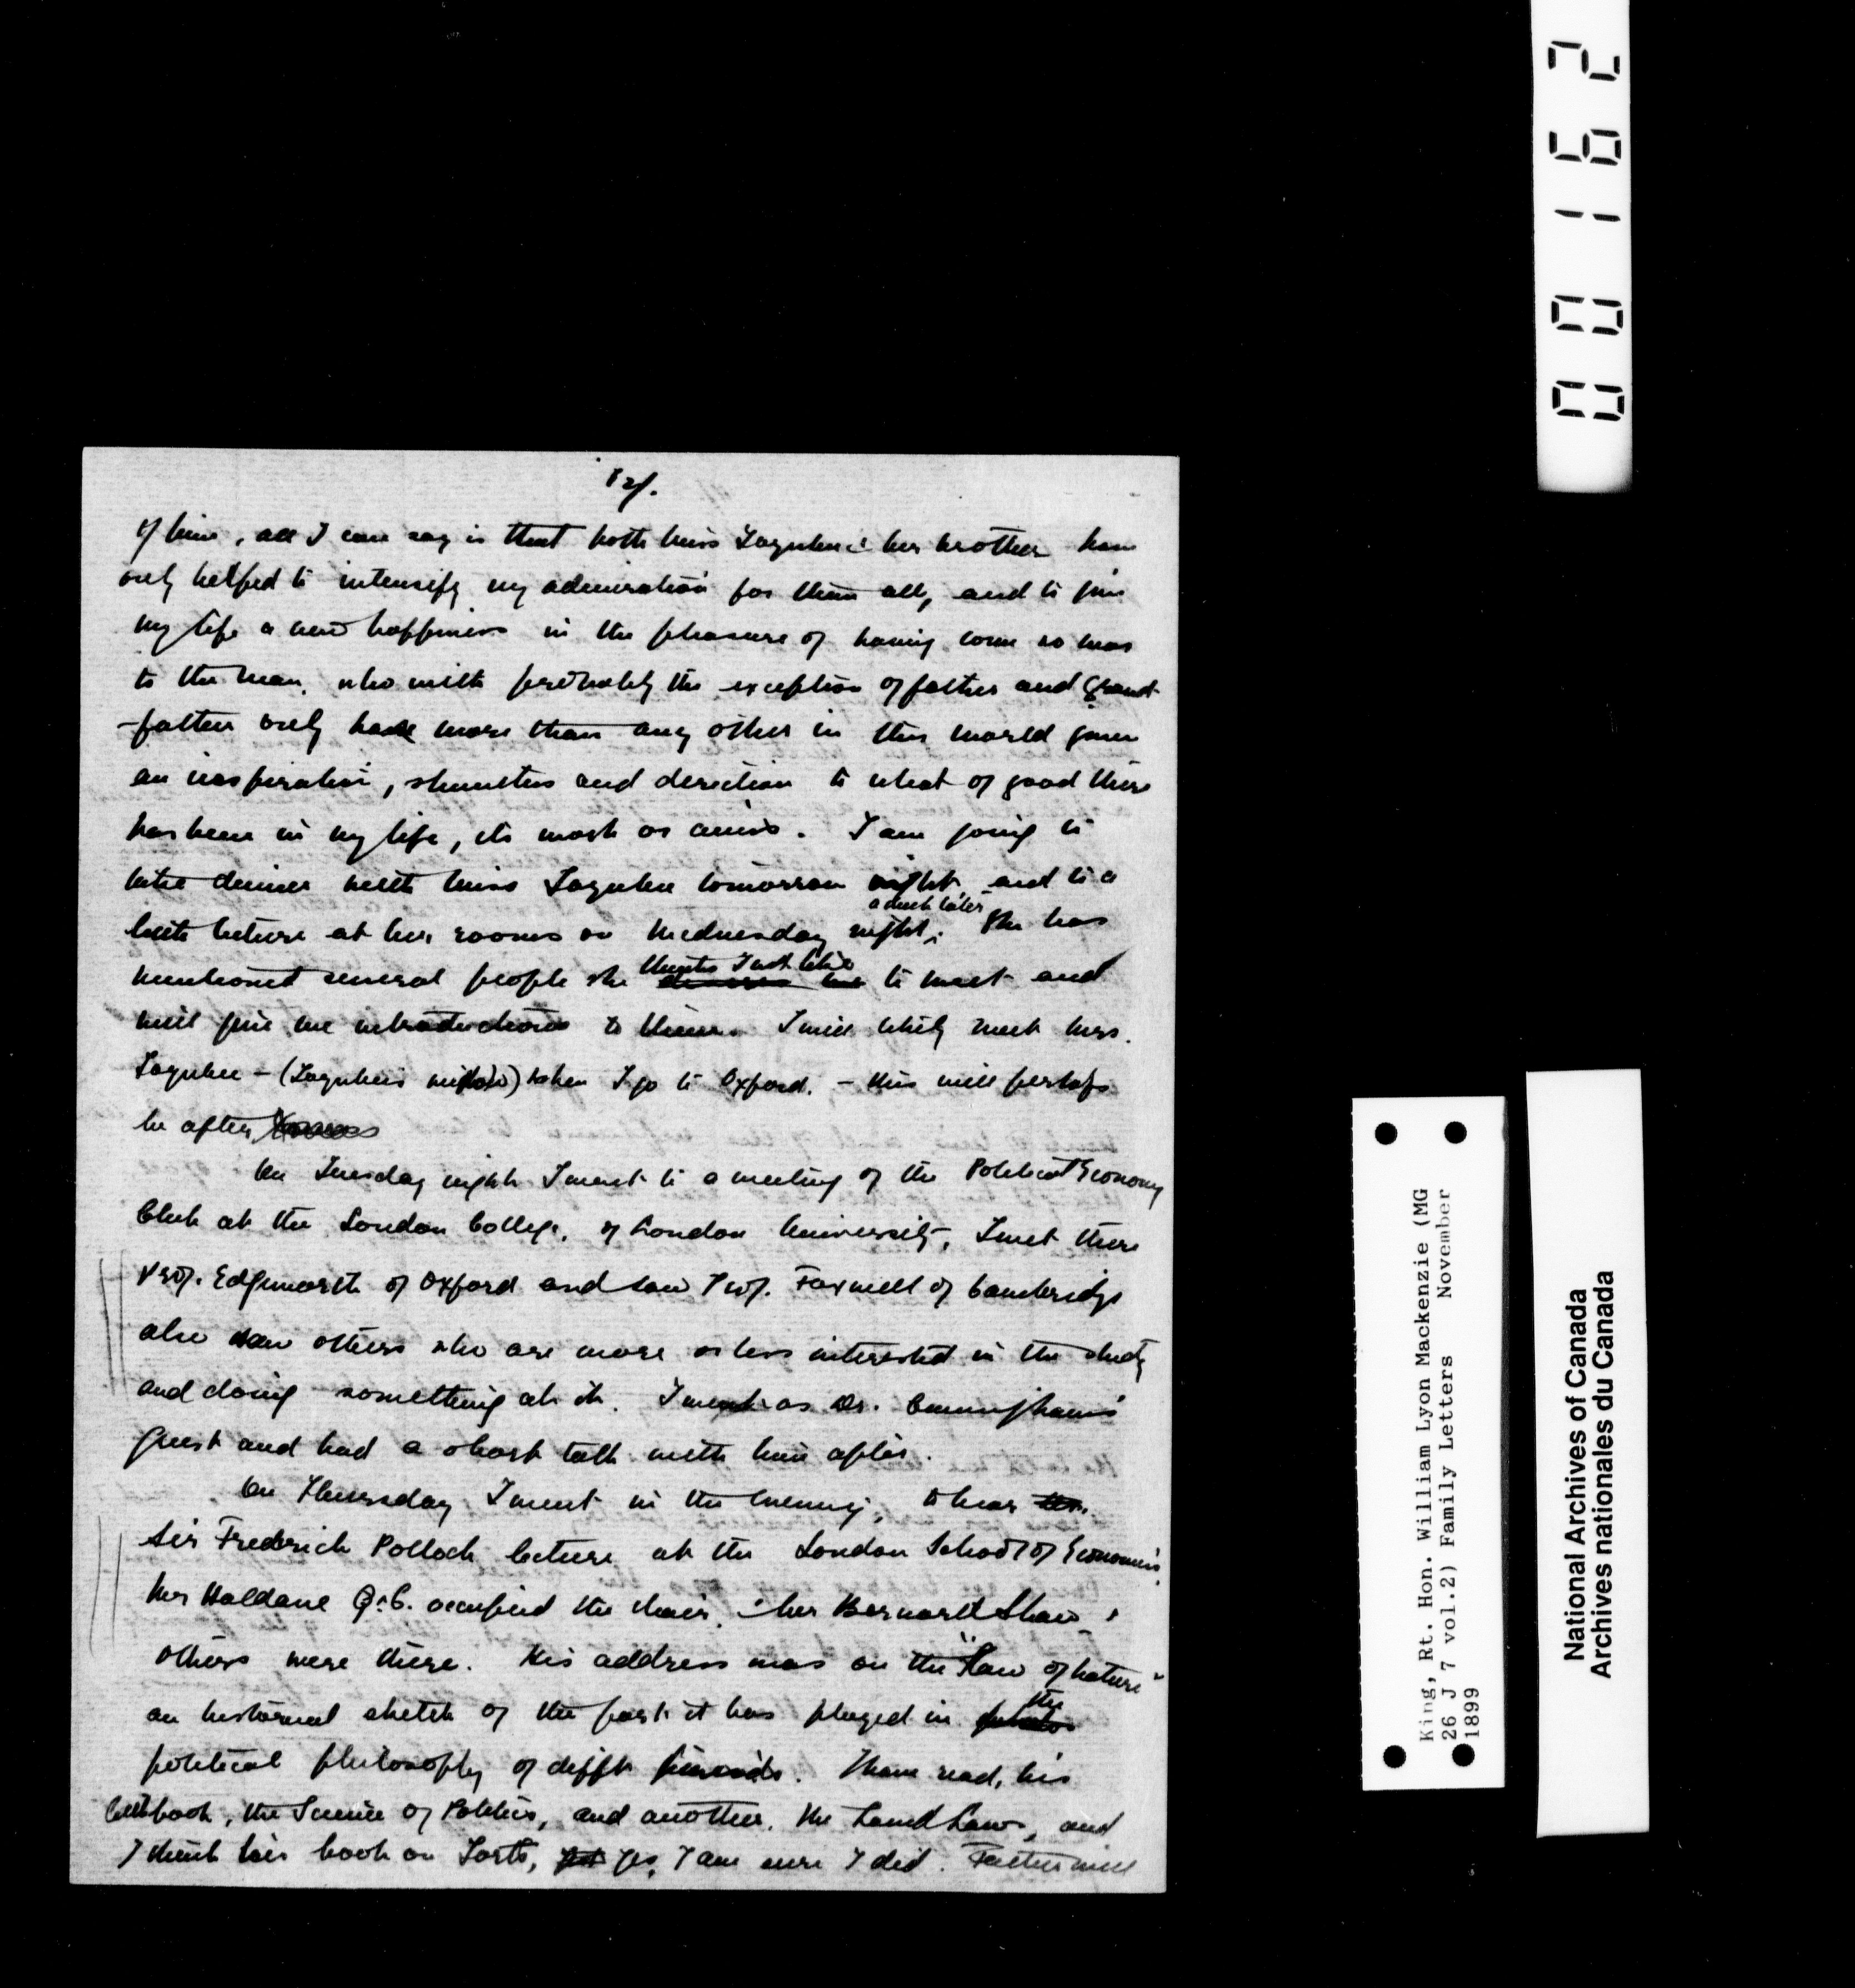 12/.
of him, all I can say is that both Miss Toynbee & her brother have
only helped to intensify my admiration for them all, and to give
my life a new happiness in the pleasure of having come so near
to the man, who with probably the exception of father and grand-
father only has more than any other in this world given
an inspiration, stimulus and direction to what of good there
has been in my life, its work or aims. I am going to
take dinner with Miss Toynbee tomorrow night, and to a
little lecture at her rooms on Wednesday night, a week later. She has
mentioned several people she thinks I wd. like to meet and
will give me introductions to them. I will likely meet Mrs.
Toynbee - (Toynbee's widow) when I go to Oxford. - this will perhaps
be after
On Tuesday night I went to a meeting of the Political Economy
Club at the London College, of London University, I met there
Prof. Edgeworth of Oxford and saw Prof. Foxwell of Cambridge
also saw others who are more or less interested in the study
and doing something at it. I went as Dr. Cunningham's
guest and had a short talk with him after.
On Thursday I went in the evening, to hear
Sir Frederick Pollock lecture at the London School of Economics.
Mr Haldane Q.C. occupied the chair, & Mr Bernard Shaw &
others were there. His address was on the "Law of Nature"
an historical sketch of the part it has played in the
political philosophy of difft periods. I have read, his
book, the Science of Politics, and another, the Land Laws, and
I think his book on Torts, yes, I am sure I did. Father will
00162
King, Rt. Hon. William Lyon Mackenzie (MG
26 J 7 vol.2) Family Letters November
1899
National Archives of Canada
Archives nationales du Canada